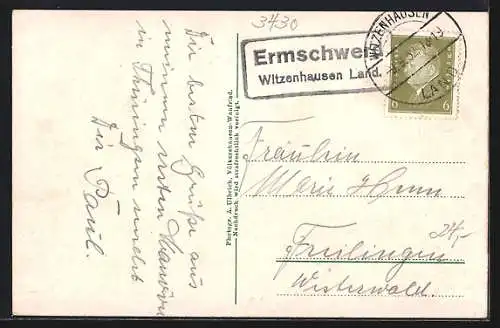 3430
Die besten Grüße aus
meinem ersten Manöver
in Thüringen sendet
Dir Paul.
Photogr. A. Ulbrich, Völkershausen-Wanfried.
Nachdruck wird ausdrücklich verfolgt.
Ermschwerd
Witzenhausen Land.
WITZENHAUSEN
LAND
6 6
Fräulein
Marie Henn
24,-
Freilingen
Westerwald.